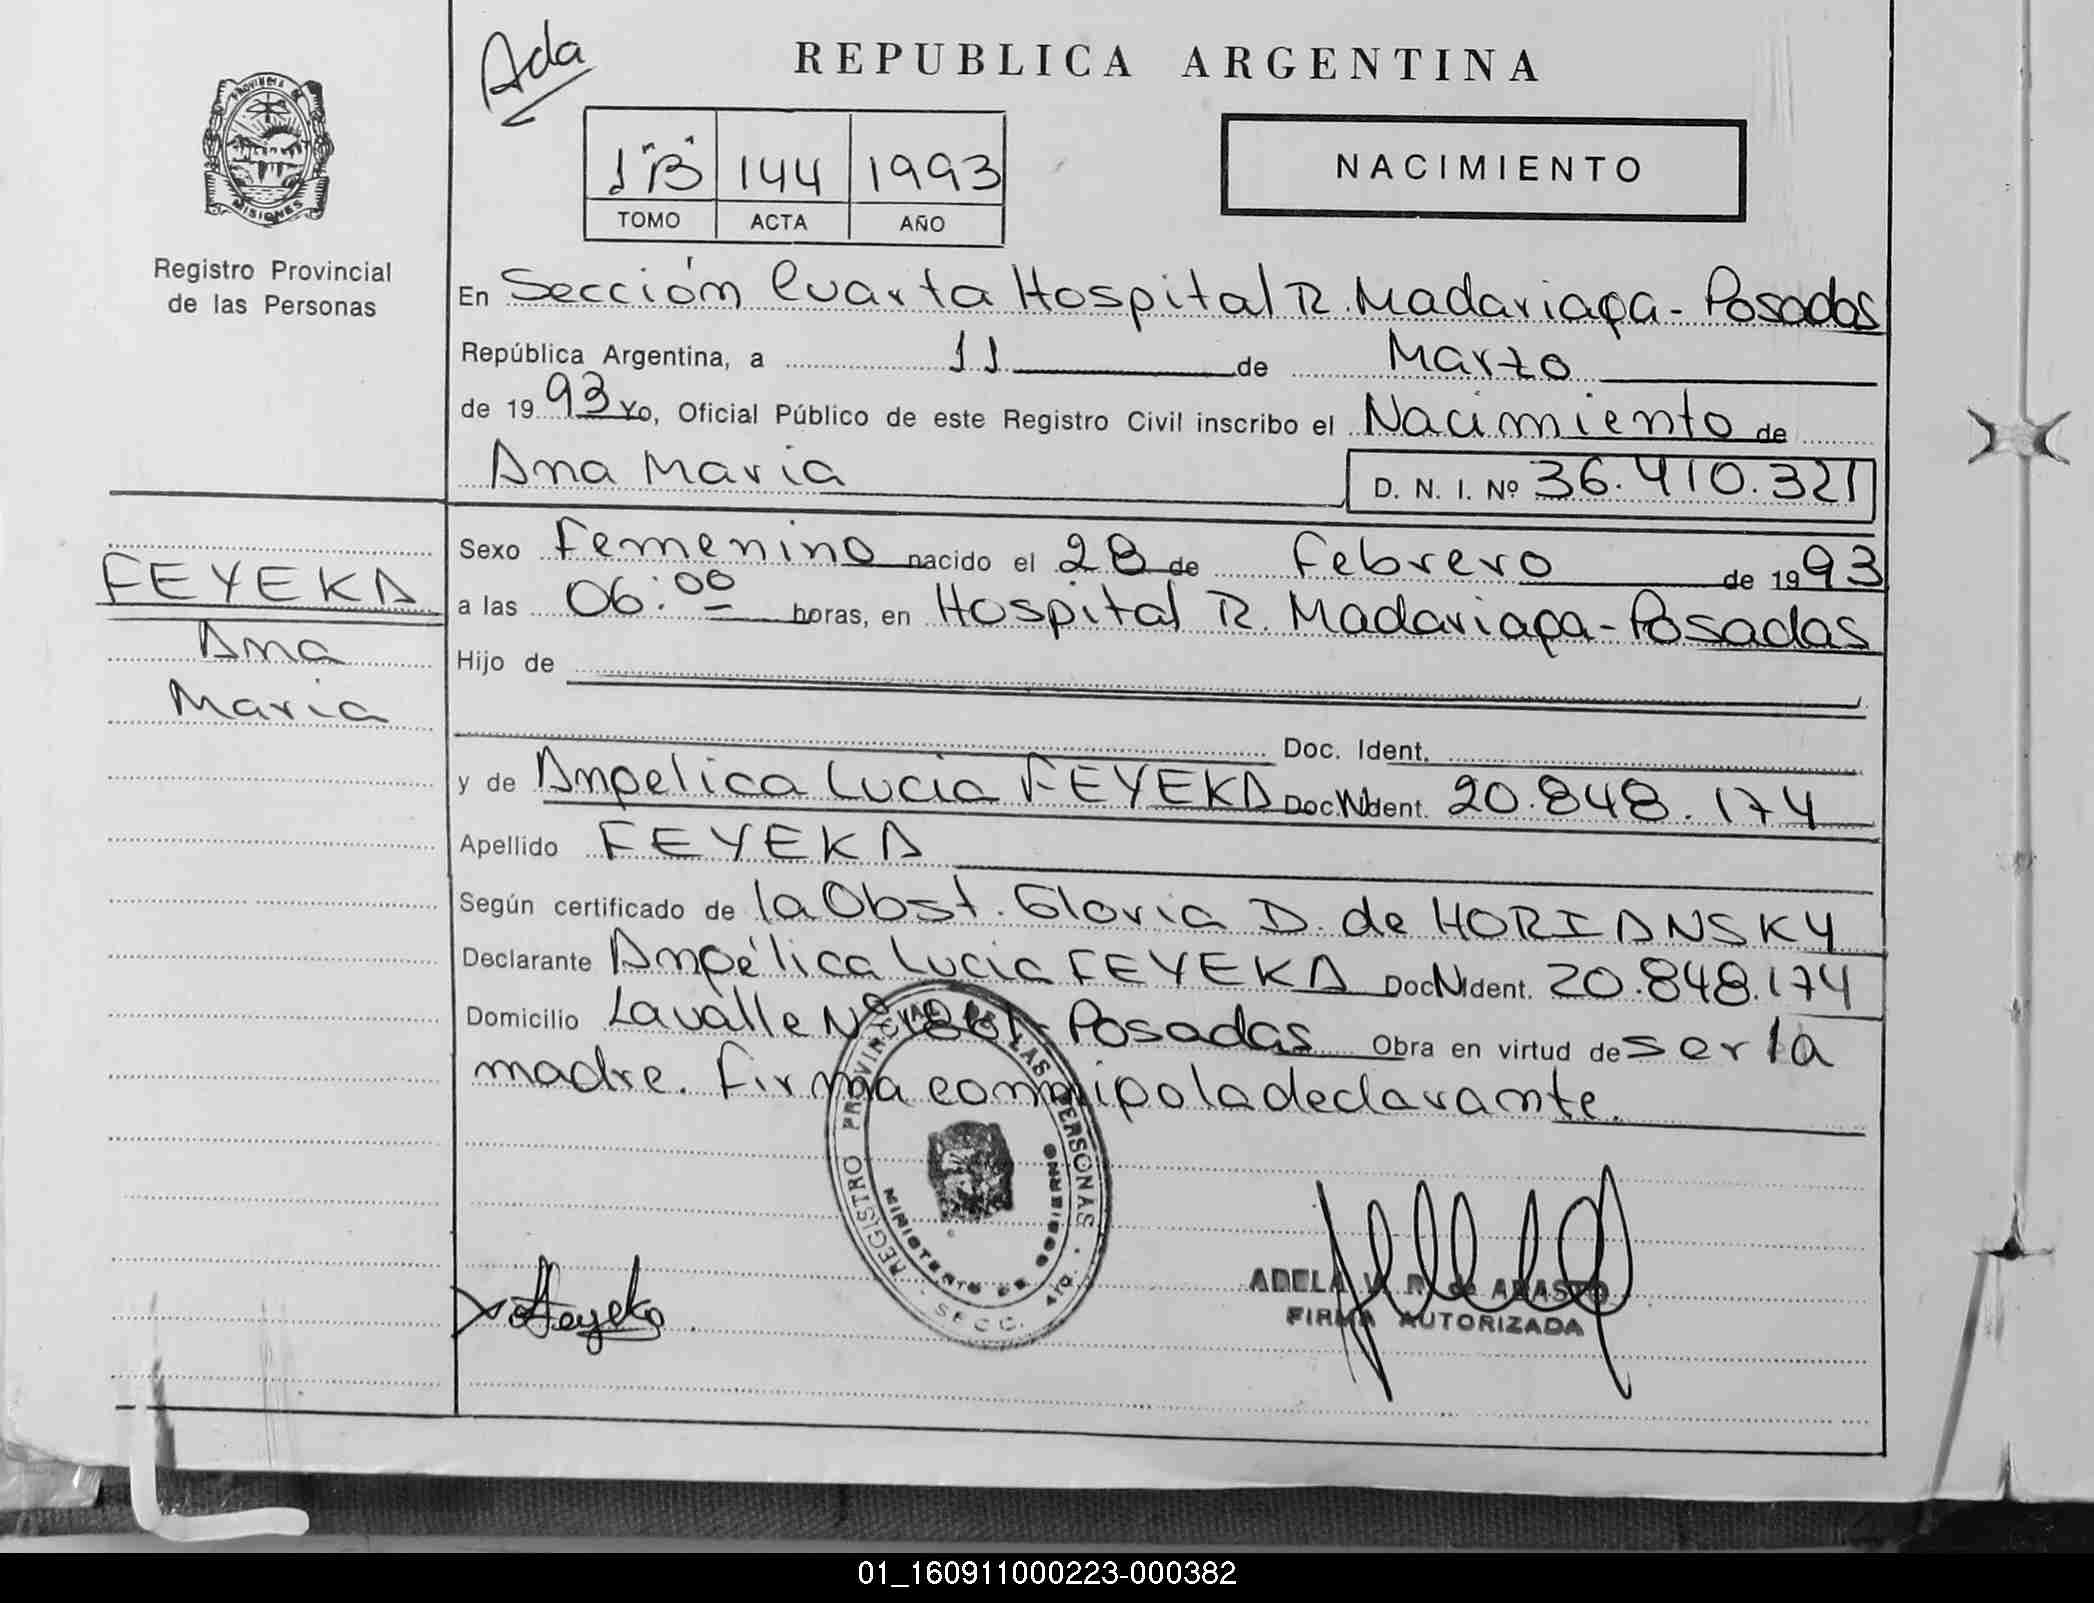 Ada
REPUBLICA ARGENTINA
PROVINCIA DE
MISIONES
1 "B" 144 1993
TOMO ACTA AÑO
NACIMIENTO
Registro Provincial
de las Personas
En Sección Cuarta Hospital R. Madariaga - Posadas
República Argentina, a 11 de Marzo
de 1993 Yo, Oficial Público de este Registro Civil inscribo el Nacimiento de
Ana Maria D. N. I. Nº 36.410.321
FEYEKA
Ana
Maria
Sexo Femenino nacido el 28 de Febrero de 1993
a las 06:00 horas, en Hospital R. Madariaga - Posadas
Hijo de
Doc. Ident.
y de Angelica Lucia FEYEKA Doc. Ident. 20.848.174
Apellido FEYEKA
Según certificado de la Obst. Gloria D. de HORIANSKY
Declarante Angélica Lucia FEYEKA Doc. Ident. 20.848.174
Domicilio Lavalle Nº Posadas Obra en virtud de ser la
madre. Firma conmigo la declarante.
REGISTRO PROVINCIAL DE LAS PERSONAS
MINISTERIO DE GOBIERNO
SECC. 4TO.
Feyeka
ADELA V. R. de ABASTO
FIRMA AUTORIZADA
01_160911000223-000382